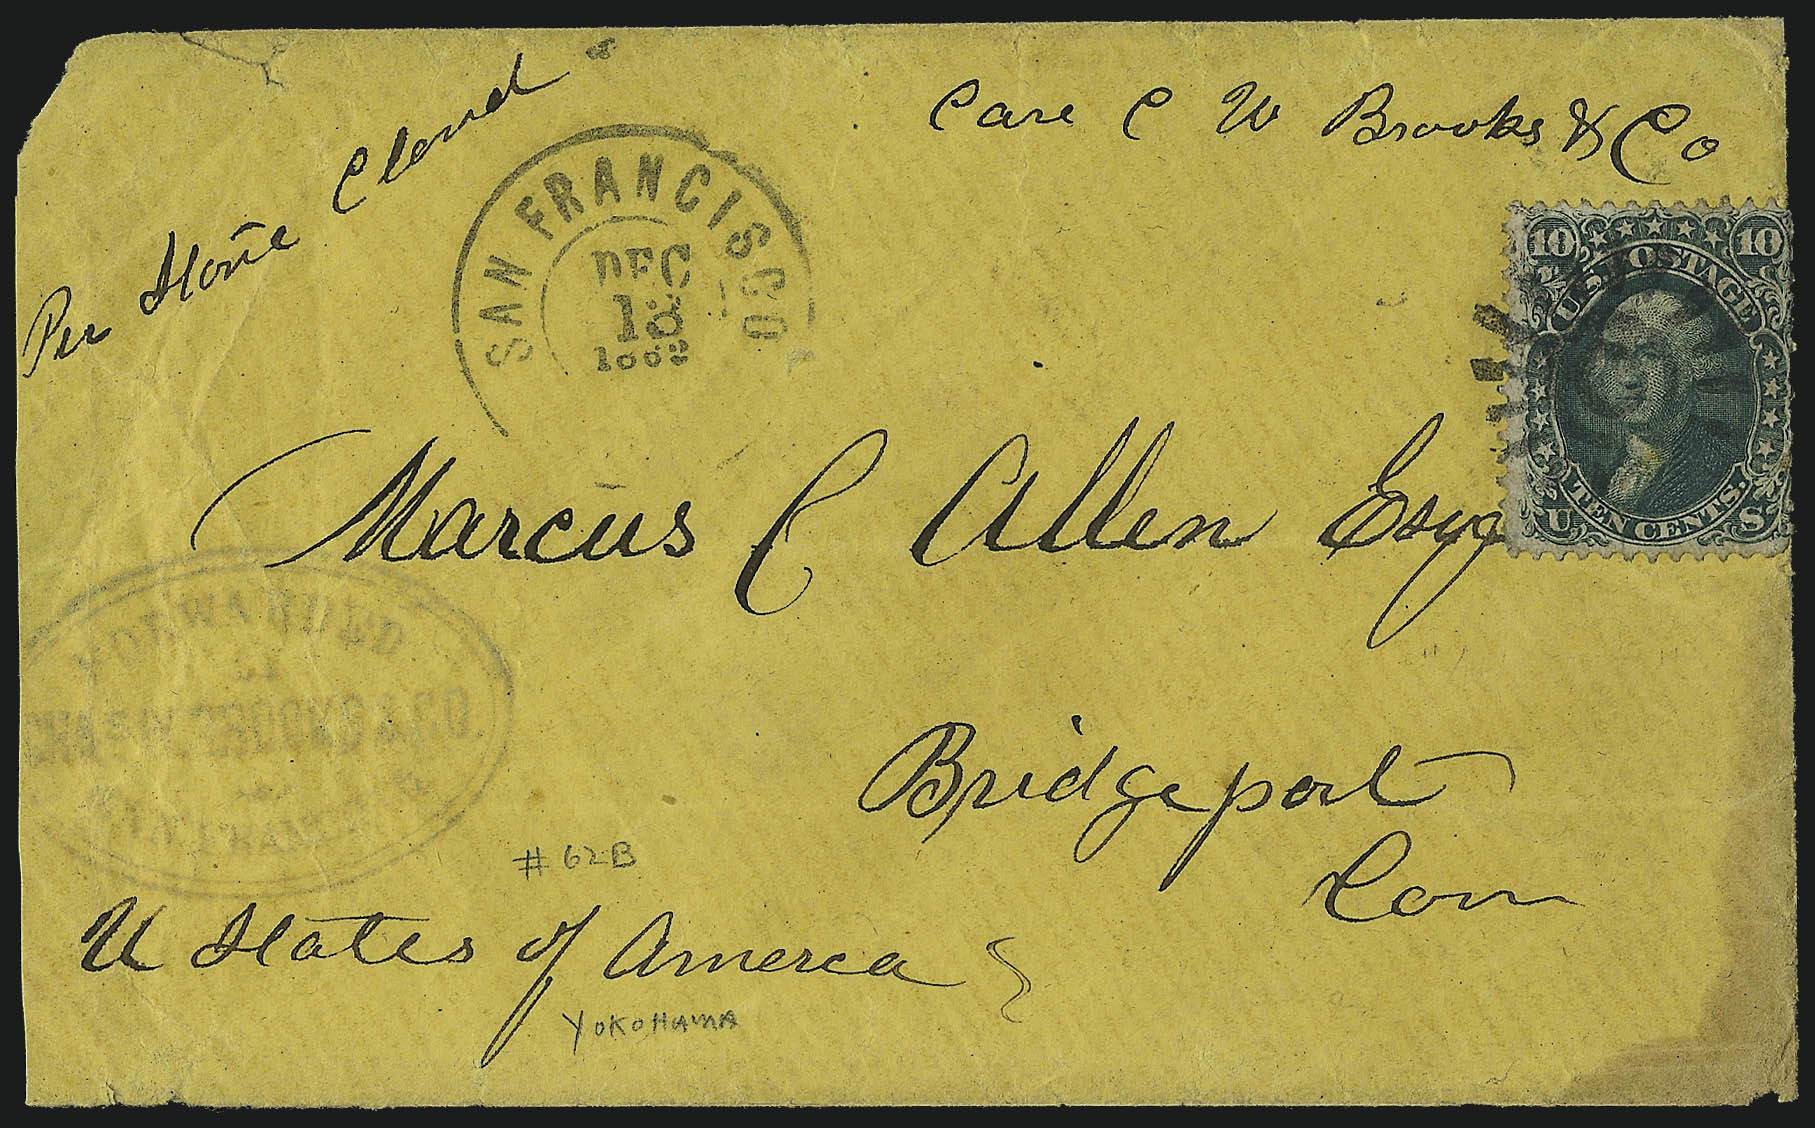 Care C W Brooks & Co
Per Storie Cloud
SAN FRANCISCO
DEC
1862
10 10
U.S. POSTAGE
TEN CENTS.
U S
Marcus C Allen Esq
FORWARDED
CHAS W. BROOKS & CO.
Bridgeport
Conn
# 62B
U States of America
YOKOHAMA